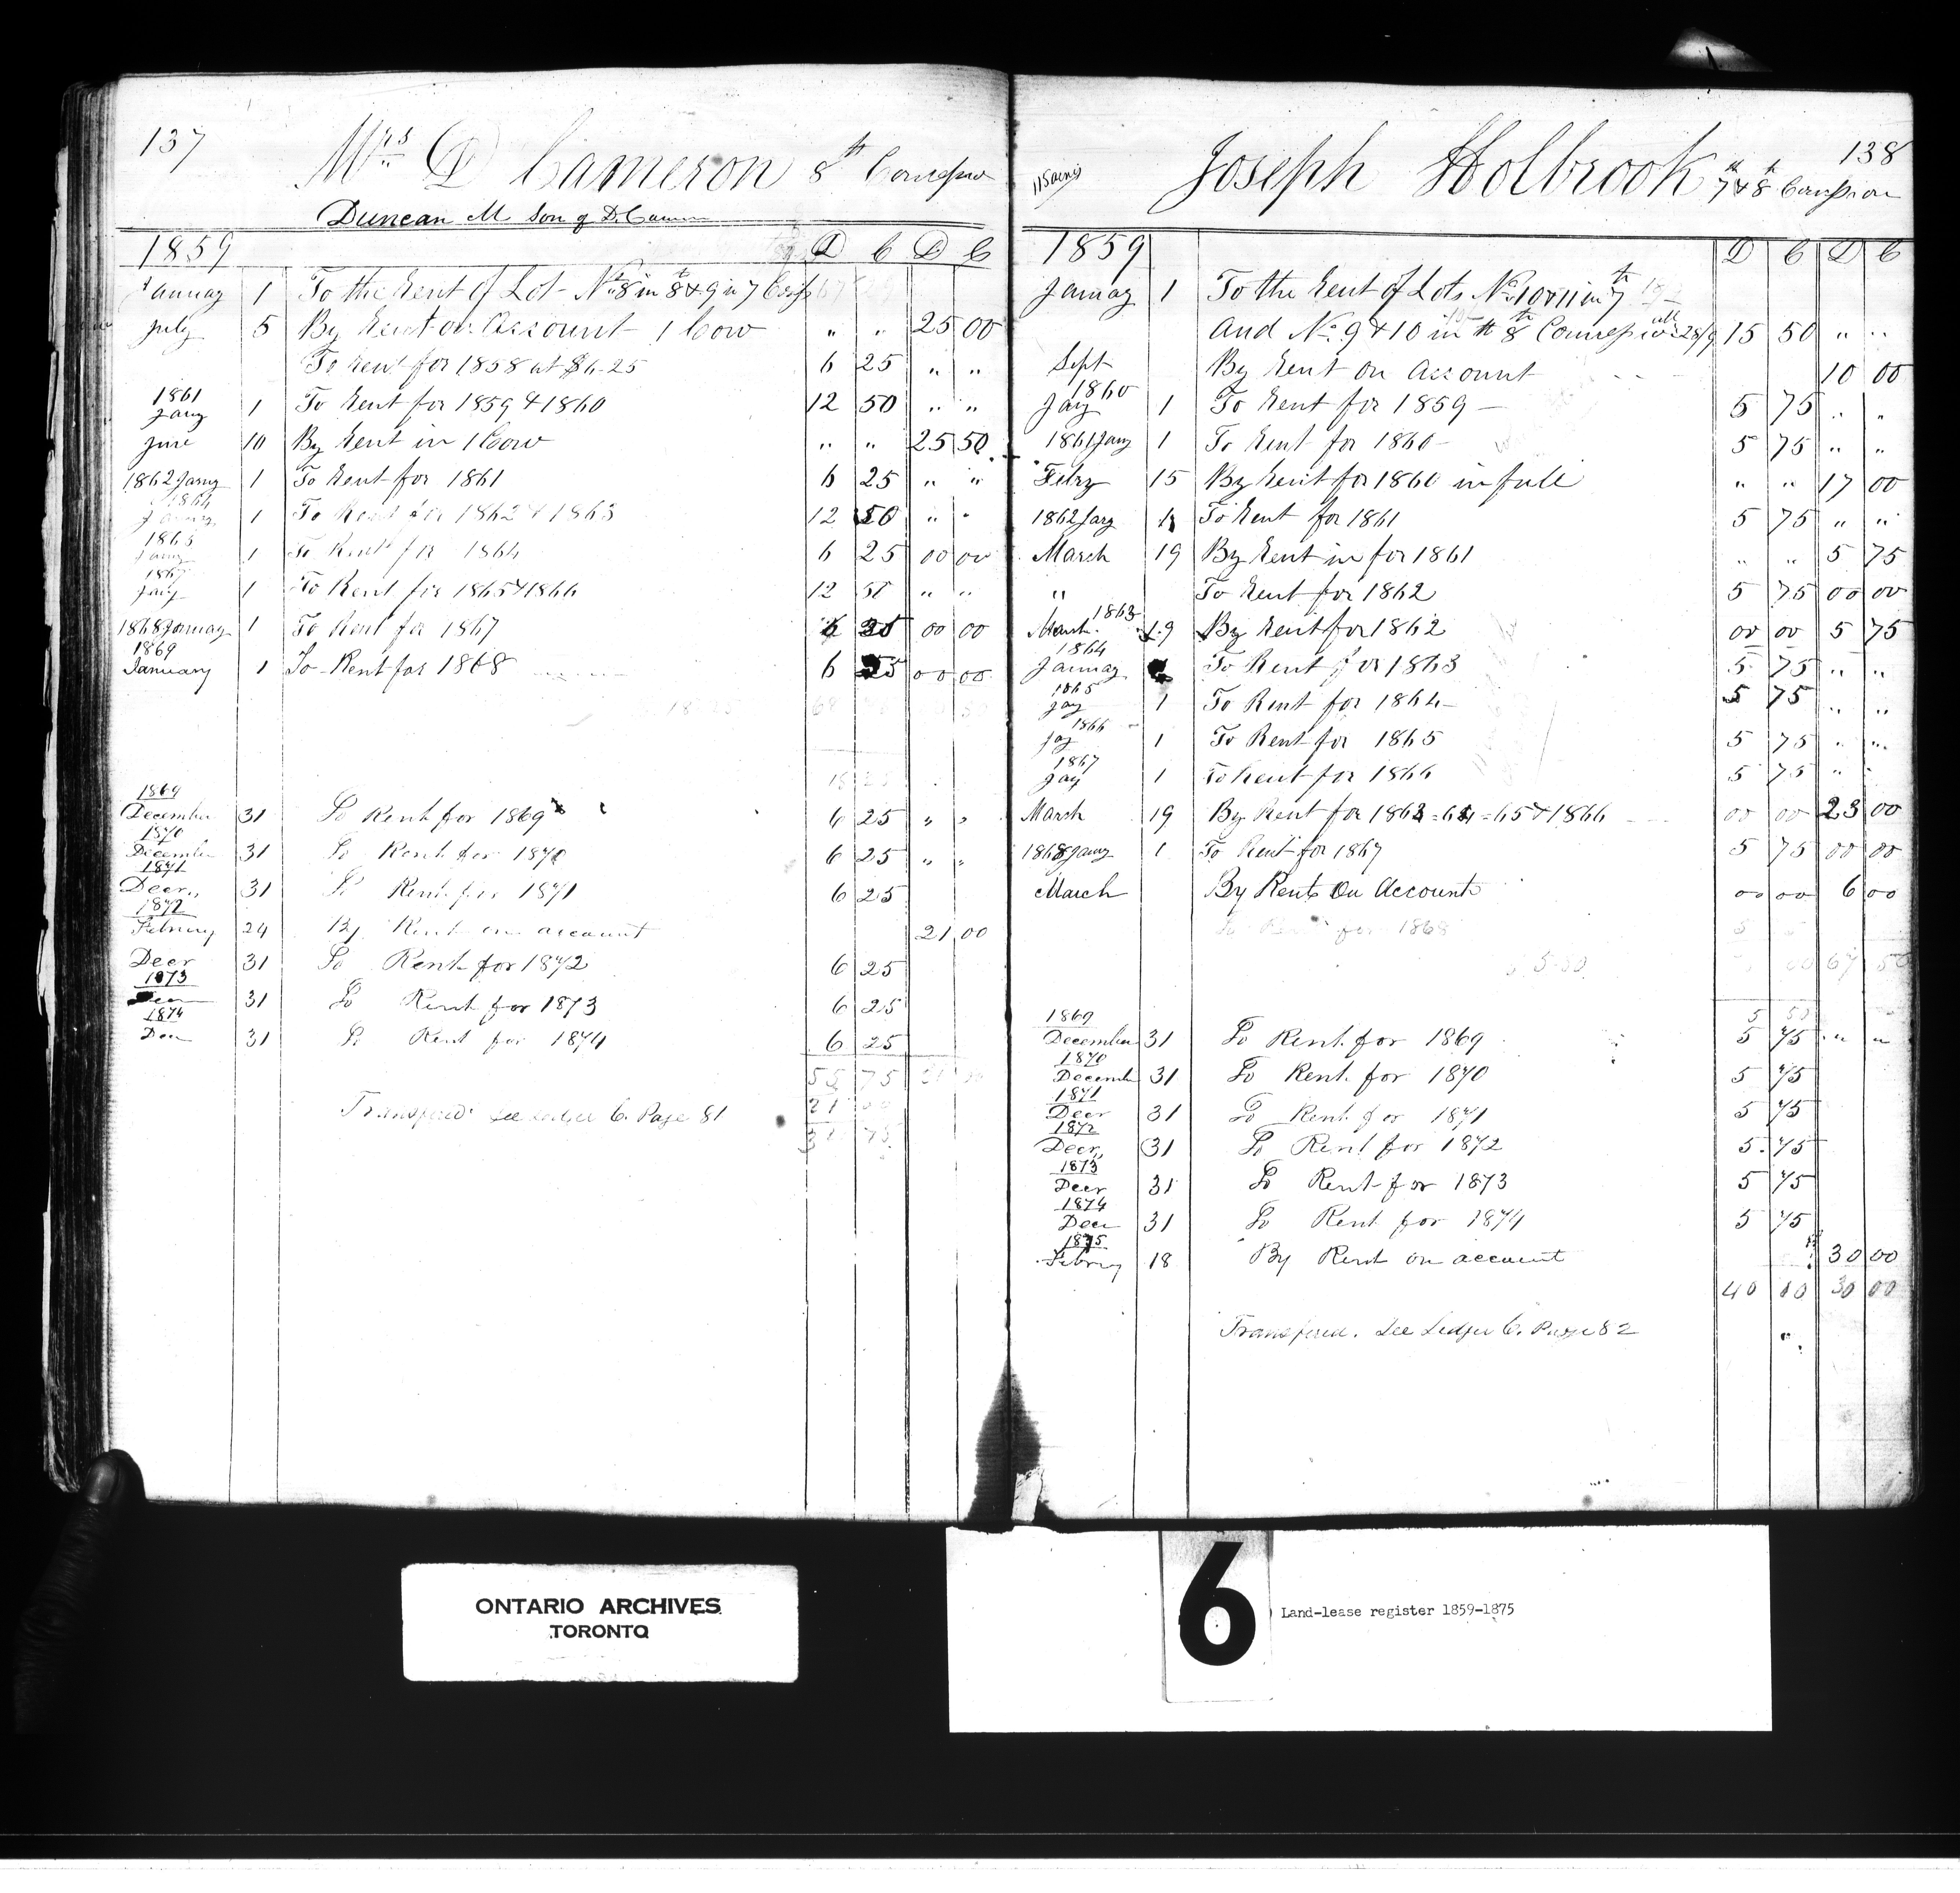 137
Mrs D Cameron 8th Concession
Duncan M son of D. Cameron
1859 D C D C
January 1 To the Rent of Lot No 8 in 8th & 9 in 7
July 5 By Rent on Account 1 Cow " " 25 00
To Rent for 1858 at $6.25 6 25 " "
1861
Jany 1 To Rent for 1859 & 1860 12 50 " "
June 10 By Rent in 1 Cow " " 25 50
1862 Jany 1 To Rent for 1861 6 25 " "
1864
Jany 1 To Rent for 1862 & 1863 12 50 " "
1865
Jany 1 To Rent for 1864 6 25 00 00
1867
Jany 1 To Rent for 1865 & 1866 12 50 " "
1868 January 1 To Rent for 1867 6 25 00 00
1869
January 1 To Rent for 1868 6 25 00 00
1869
December 31 To Rent for 1869 6 25 " "
1870
December 31 To Rent for 1870 6 25 " "
1871
Decr 31 To Rent for 1871 6 25
1872
Februry 24 By Rent on account 21 00
Decr 31 To Rent for 1872 6 25
1873
Decr 31 To Rent for 1873 6 25
1874
Decr 31 To Rent for 1874 6 25
55 75 21
Transfered See Ledger C. Page 81 21 00
31 75
138
115 acres Joseph Holbrook 7th & 8th Concession
1859 D C D C
January 1 To the Rent of Lots No 10 & 11 in 7th
And No 9 & 10 in the 8th Concession 15 50 " "
Sept By Rent on Account 10 00
1860
Jay 1 To Rent for 1859 5 75 " "
1861 Jany 1 To Rent for 1860 5 75 " "
Febry 15 By Rent for 1860 in full " " 17 00
1862 Jary 1 To Rent for 1861 5 75 " "
March 19 By Rent in for 1861 " " 5 75
" To Rent for 1862 5 75 00 00
1863
March 19 By Rent for 1862 00 00 5 75
1864
January To Rent for 1863 5 75 " "
1865
Jay 1 To Rent for 1864 5 75 " "
1866
Jay 1 To Rent for 1865 5 75 " "
1867
Jay 1 To Rent for 1866 5 75 "
March 19 By Rent for 1863 = 64 = 65 & 1866 00 00 23 00
1868 Jany 1 To Rent for 1867 5 75 00 00
March By Rents On Account 00 00 6 00
To Rent for 1868 5
67 50
5 50
1869
December 31 To Rent for 1869 5 75 " "
1870
Decembr 31 To Rent for 1870 5 75
1871
Decr 31 To Rent for 1871 5 75
1872
Decr 31 To Rent for 1872 5 75
1873
Decr 31 To Rent for 1873 5 75
1874
Decr 31 To Rent for 1874 5 75
1875
Februy 18 By Rent on account 30 00
40 00 30 00
Transfered. See Ledger C. Page 82
ONTARIO ARCHIVES
TORONTO
6
Land-lease register 1859-1875